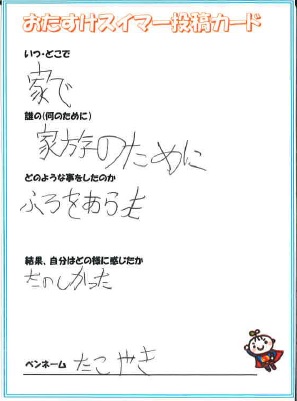 おたすけスイマー投稿カード
いつ・どこで
家で
誰の(何のために)
家族のために
どのような事をしたのか
ふろをあらも
結果、自分はどの様に感じたか
たのしかった
ペンネーム たこやき